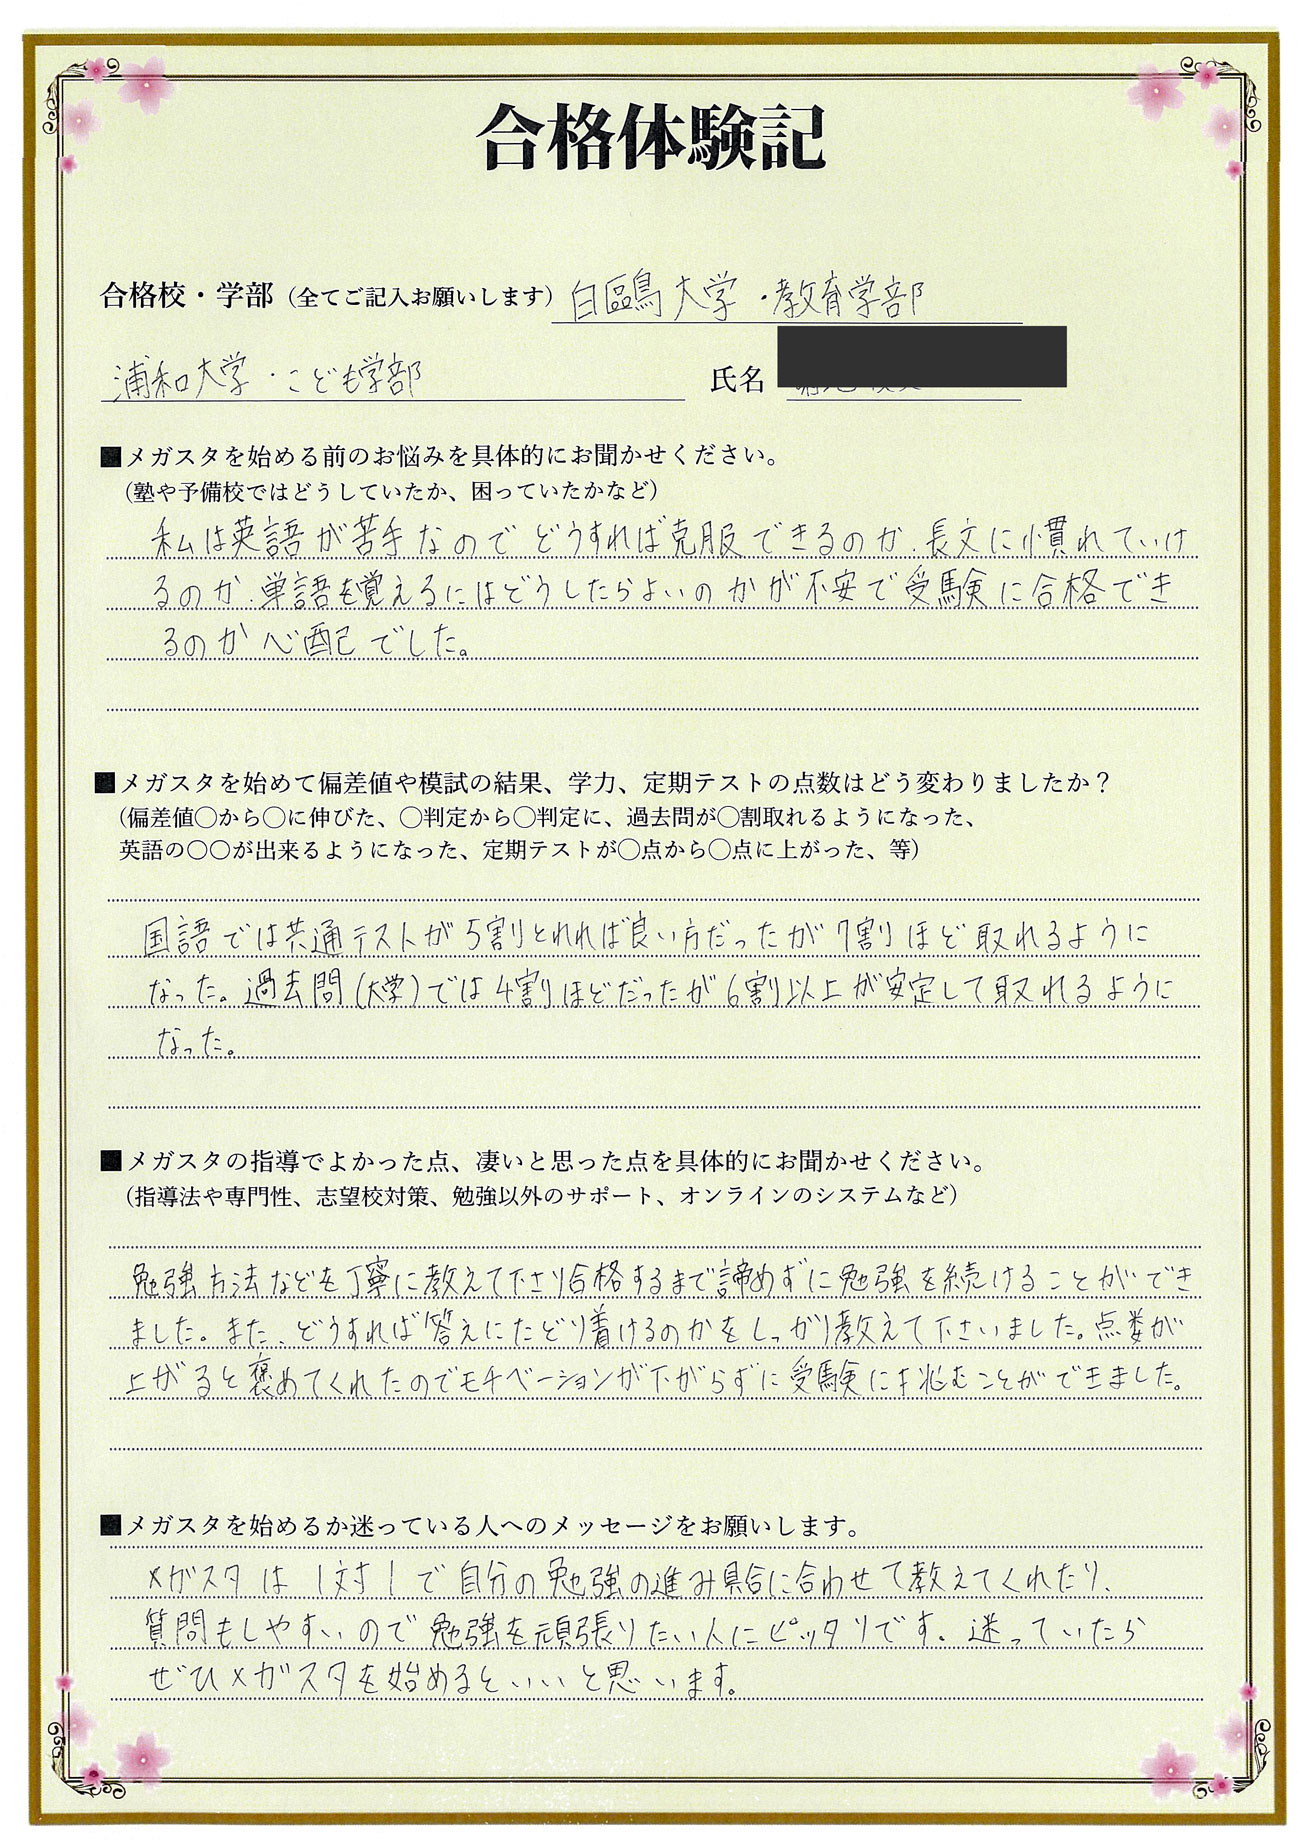 合格体験記
合格校・学部（全てご記入お願いします）白鷗大学・教育学部
浦和大学・こども学部 氏名
■メガスタを始める前のお悩みを具体的にお聞かせください。
（塾や予備校ではどうしていたか、困っていたかなど）
私は英語が苦手なのでどうすれば克服できるのか、長文に慣れていけ
るのか、単語を覚えるにはどうしたらよいのかが不安で受験に合格でき
るのか心配でした。
■メガスタを始めて偏差値や模試の結果、学力、定期テストの点数はどう変わりましたか？
（偏差値〇から〇に伸びた、〇判定から〇判定に、過去問が〇割取れるようになった、
英語の〇〇が出来るようになった、定期テストが〇点から〇点に上がった、等）
国語では共通テストが5割とれれば良い方だったが7割ほど取れるように
なった。過去問(大学)では4割ほどだったが6割以上が安定して取れるように
なった。
■メガスタの指導でよかった点、凄いと思った点を具体的にお聞かせください。
（指導法や専門性、志望校対策、勉強以外のサポート、オンラインのシステムなど）
勉強方法などを丁寧に教えて下さり合格するまで諦めずに勉強を続けることができ
ました。また、どうすれば答えにたどり着けるのかをしっかり教えて下さいました。点数が
上がると褒めてくれたのでモチベーションが下がらずに受験に挑むことができました。
■メガスタを始めるか迷っている人へのメッセージをお願いします。
メガスタは1対1で自分の勉強の進み具合に合わせて教えてくれたり、
質問もしやすいので勉強を頑張りたい人にピッタリです。迷っていたら
ぜひメガスタを始めるといいと思います。